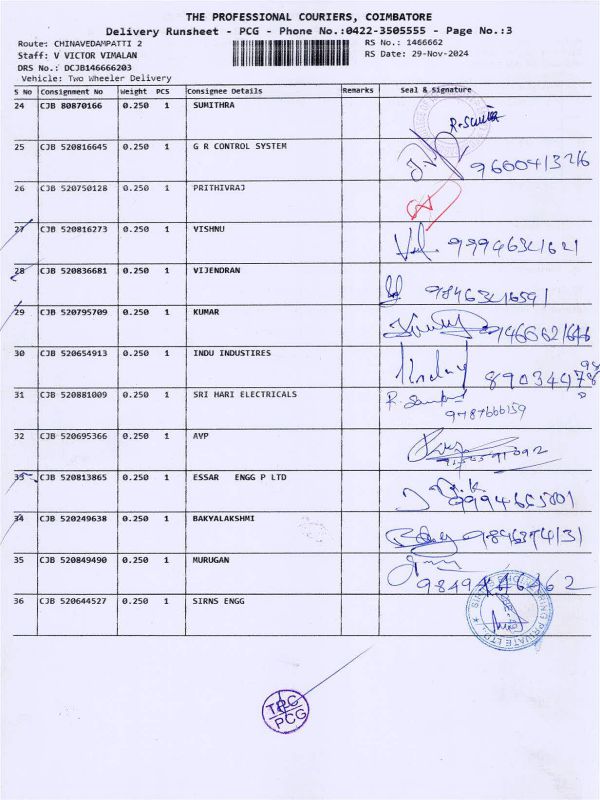 THE PROFESSIONAL COURIERS, COIMBATORE
Delivery Runsheet - PCG - Phone No.:0422-3505555 - Page No.:3
Route: CHINAVEDAMPATTI 2 RS No.: 1466662
Staff: V VICTOR VIMALAN RS Date: 29-Nov-2024
DRS No.: DCJB146666203
Vehicle: Two Wheeler Delivery
S No Consignment No Weight PCS Consignee Details Remarks Seal & Signature
24 CJB 80870166 0.250 1 SUMITHRA
25 CJB 520816645 0.250 1 G R CONTROL SYSTEM 9600413216
26 CJB 520750128 0.250 1 PRITHIVRAJ
27 CJB 520816273 0.250 1 VISHNU
28 CJB 520836681 0.250 1 VIJENDRAN
29 CJB 520795709 0.250 1 KUMAR
30 CJB 520654913 0.250 1 INDU INDUSTIRES
31 CJB 520881009 0.250 1 SRI HARI ELECTRICALS 9787666159
32 CJB 520695366 0.250 1 AVP
33 CJB 520813865 0.250 1 ESSAR ENGG P LTD
34 CJB 520249638 0.250 1 BAKYALAKSHMI
35 CJB 520849490 0.250 1 MURUGAN
36 CJB 520644527 0.250 1 SIRNS ENGG
PCG